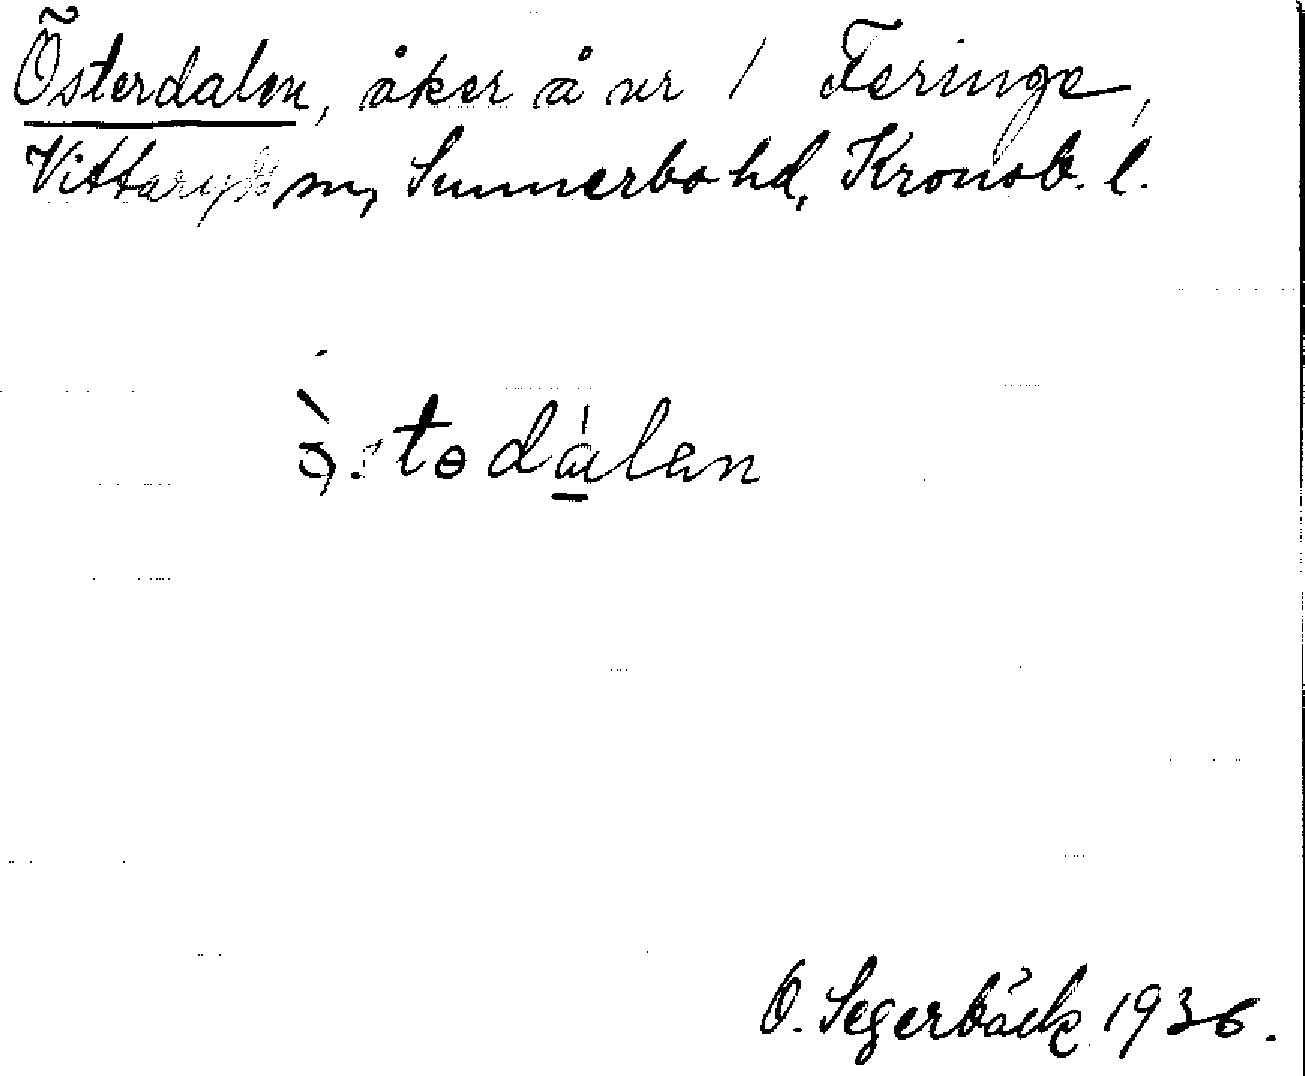 Österdalen, åker å nr 1 Feringe,
Vittaryds sn, Sunnerbo hd, Kronob. l.
ò̜stɵdálen
O. Segerbäck 1936.